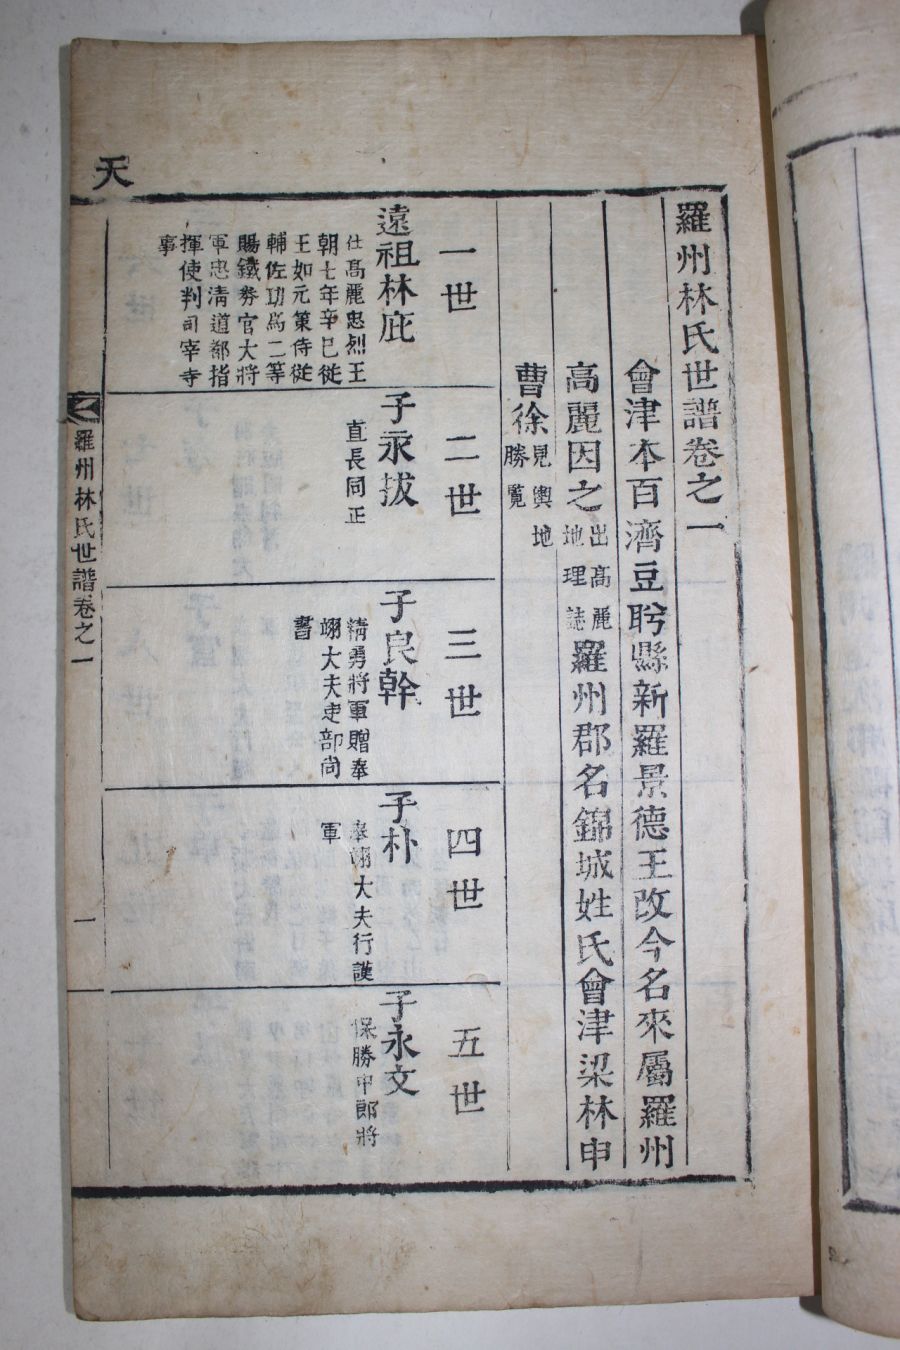 天
羅州林氏世譜卷之一
會津本百濟豆肹縣新羅景德王改今名來屬羅州
高麗因之出高麗地理誌羅州郡名錦城姓氏會津梁林申
曹徐見輿地勝覽
一世
遠祖林庇
仕高麗忠烈王
朝七年辛巳從
王如元策侍從
輔佐功爲二等
賜鐵券官大將
軍忠淸道都指
揮使判司宰寺
事
二世
子永拔
直長同正
三世
子良幹
精勇將軍贈奉
翊大夫吏部尙
書
四世
子朴
奉翊大夫行護
軍
五世
子永文
保勝中郞將
羅州林氏世譜卷之一
一